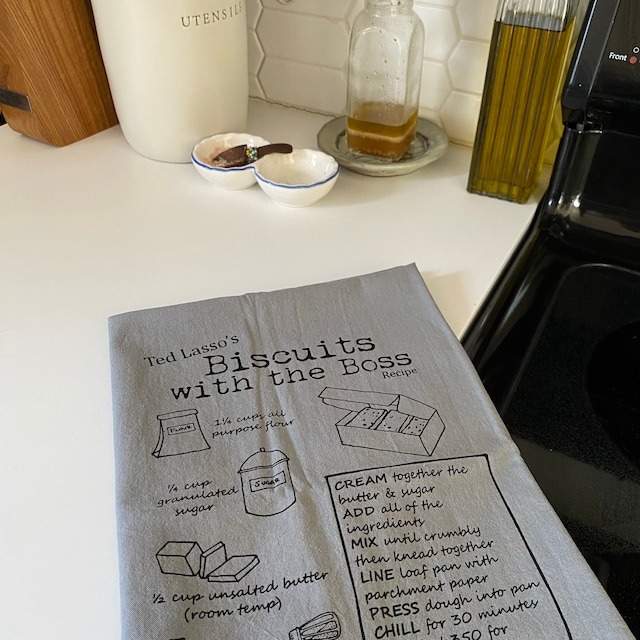 UTENSILS
Front
Ted Lasso's
Biscuits
with the Boss
Recipe
FLOUR
1¼ cups all
purpose flour
¼ cup
granulated
sugar
SUGAR
½ cup unsalted butter
(room temp)
CREAM together the
butter & sugar
ADD all of the
ingredients
MIX until crumbly
then knead together
LINE loaf pan with
parchment paper
PRESS dough into pan
CHILL for 30 minutes
350 for